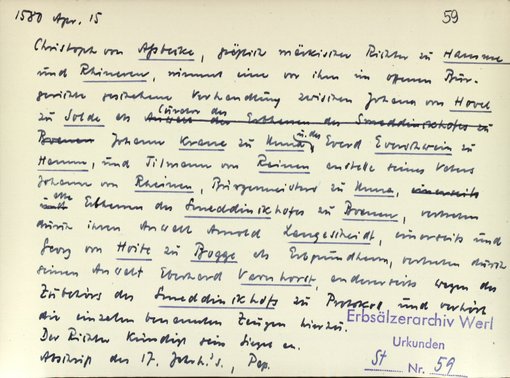 1580 Apr. 15
59
Christoph von Aßbeike, gräflich märkischer Richter zu Hamme
und Rhineren, nimmt eine vor ihm im offenen Bür-
gericht geschehene Verhandlung zwischen Johann von Hövel
zu Solde als Curator des Anwalt der Erbhennen des Smeddinckhofes zu
Bremen Johann Krane zu Unna, u. des Everd Everschwein zu
Hamm, und Tilmann von Reinen anstelle seines Vaters
Johann von Rheinen, Bürgermeisters zu Unna, einerseits
und alle Erbhennen des Smeddinckhofes zu Bremen, vertreten
durch ihren Anwalt Arnold Langescheidt, einerseits und
Georg von Hoite zu Bögge als Erbpfundherrn, vertreten durch
seinen Anwalt Eberhard Varnhorst, andererseits wegen des
Zubehörs des Smeddinckhofs zu Protokoll und verhört
die einzelen benannten Zeugen hierzu.
Der Richter kündigt sein Siegel an.
Abschrift des 17. Jahrh.'s, Pap.
Erbsälzerarchiv Werl
Urkunden
St Nr. 59